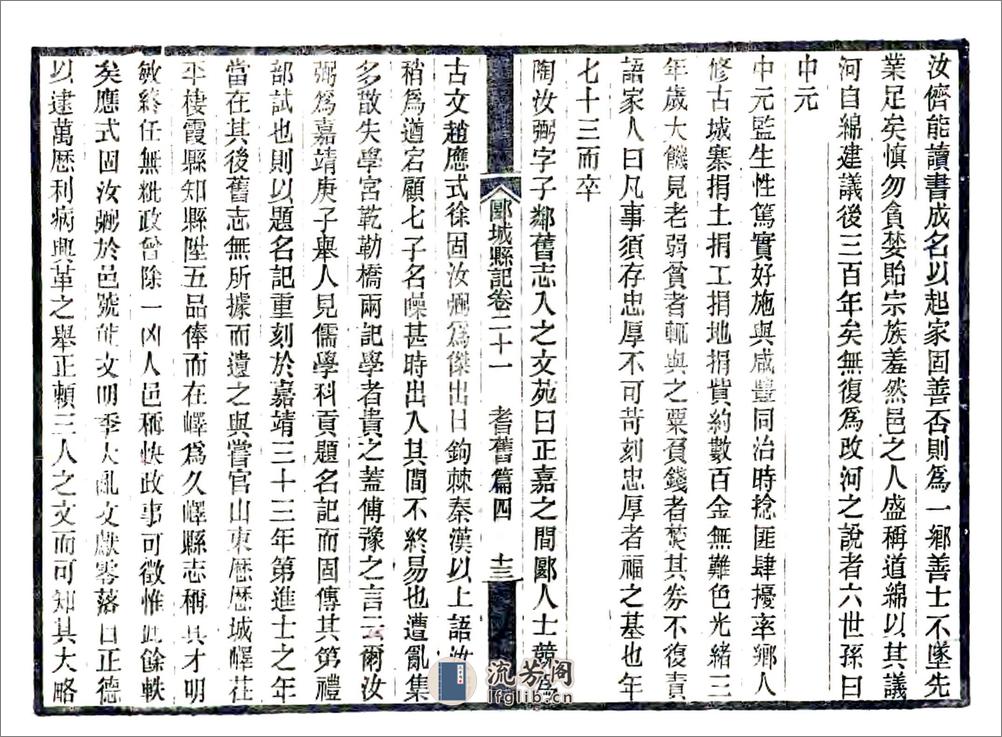 汝儕能讀書成名以起家固善否則爲一鄉善士不墜先
業足矣慎勿貪婪貽宗族羞然邑之人盛稱道綿以其議
河自綿建議後三百年矣無復爲改河之說者六世孫曰
中元
中元監生性篤實好施與咸豐同治時捻匪肆擾率鄉人
修古城寨捐土捐工捐地捐貲約數百金無難色光緒三
年歲大饑見老弱貧者輒與之粟負錢者焚其券不復責
語家人曰凡事須存忠厚不可苛刻忠厚者福之基也年
七十三而卒
陶汝弼字子鄰舊志入之文苑曰正嘉之間郾人士競爲
郾城縣記卷二十一 耆舊篇四 十三
古文趙應式徐固汝弼爲傑出曰鉤棘秦漢以上語汝
稍爲遒宕顧七子名噪甚時出入其間不終易也遭亂集
多散失學宮乾勒橋兩記學者貴之蓋傅豫之言云爾汝
弼爲嘉靖庚子舉人見儒學科貢題名記而固傳其第禮
部試也則以題名記重刻於嘉靖三十三年第進士之年
當在其後舊志無所據而遺之與嘗官山東歷歷城嶧茌
平棲霞縣知縣陞五品俸而在嶧爲久嶧縣志稱其才明
敏終任無粃政曾除一凶人邑稱快政事可徵惟此餘軼
矣應式固汝弼於邑號能文明季大亂文獻零落自正德
以逮萬歷利病興革之舉正賴三人之文而可知其大略
流芳閣
lfglib.cn